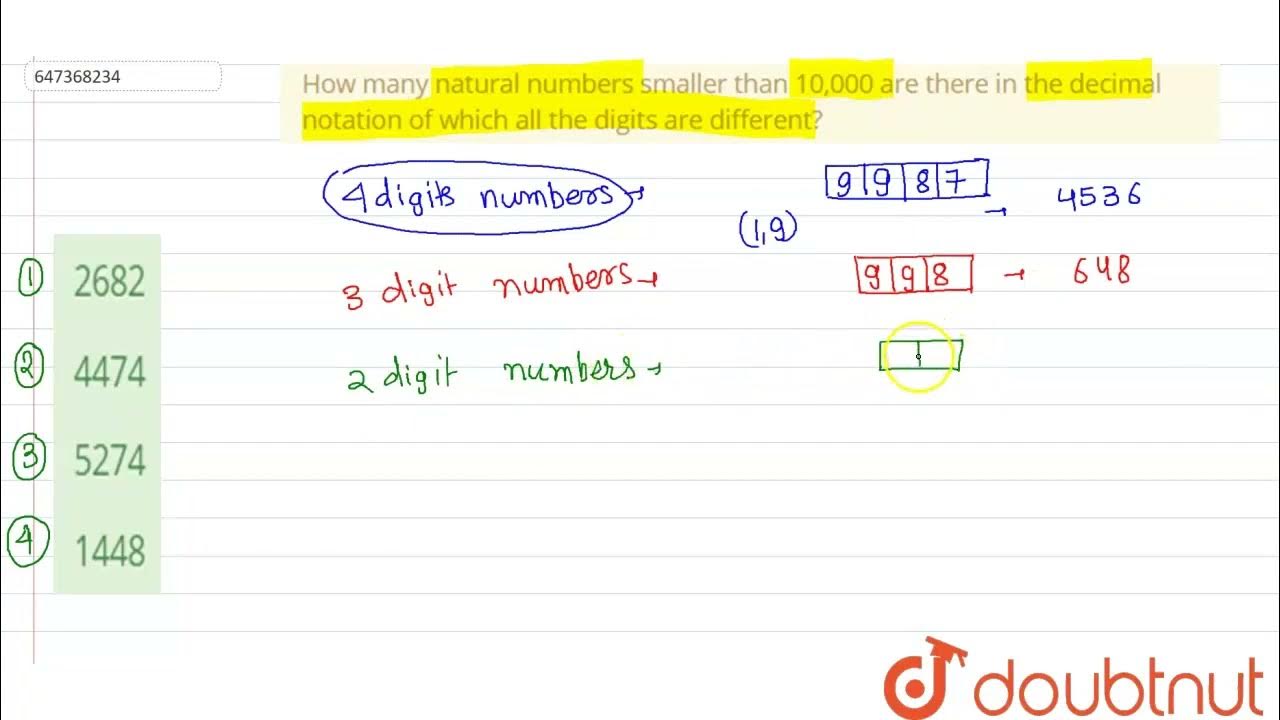 647368234
How many natural numbers smaller than 10,000 are there in the decimal
notation of which all the digits are different?
4 digits numbers → 9 9 8 7 → 4536
(1,9)
① 2682
3 digit numbers → 9 9 8 → 648
② 4474
2 digit numbers →
③ 5274
④ 1448
doubtnut